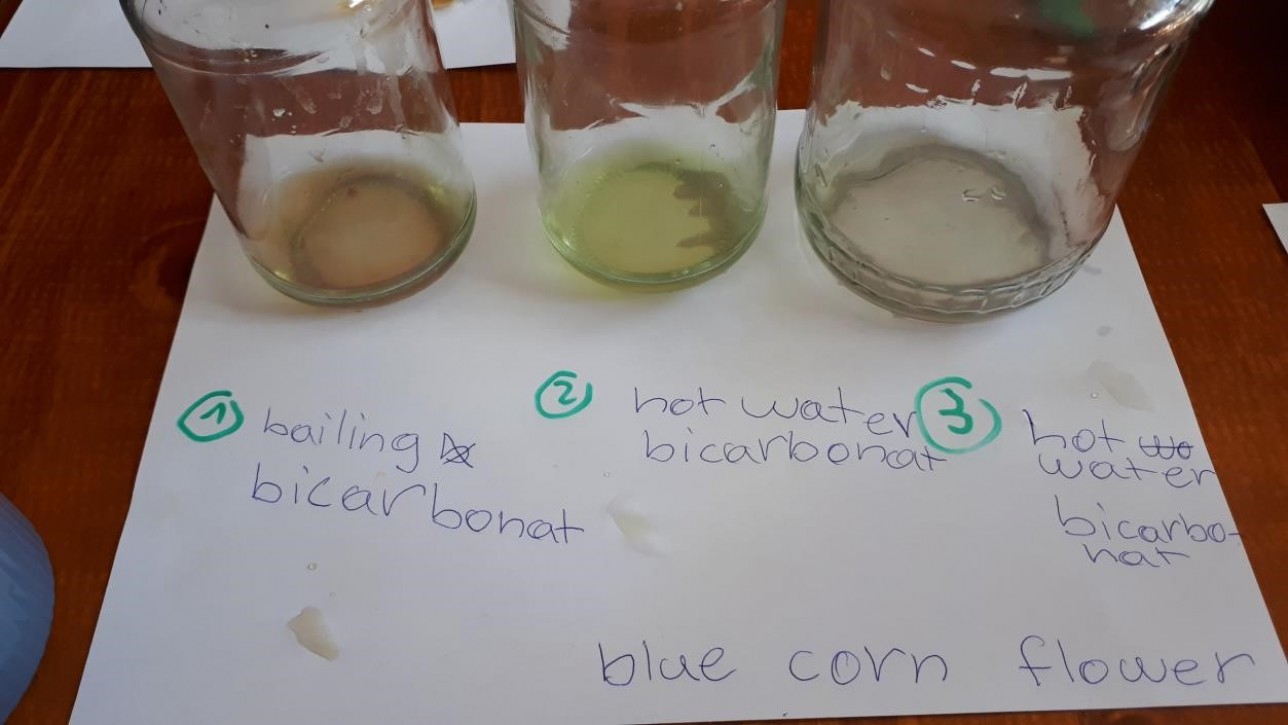 1 bailing
bicarbonat
2 hot water
bicarbonat
3 hot
water
bicarbo-
nat
blue corn flower